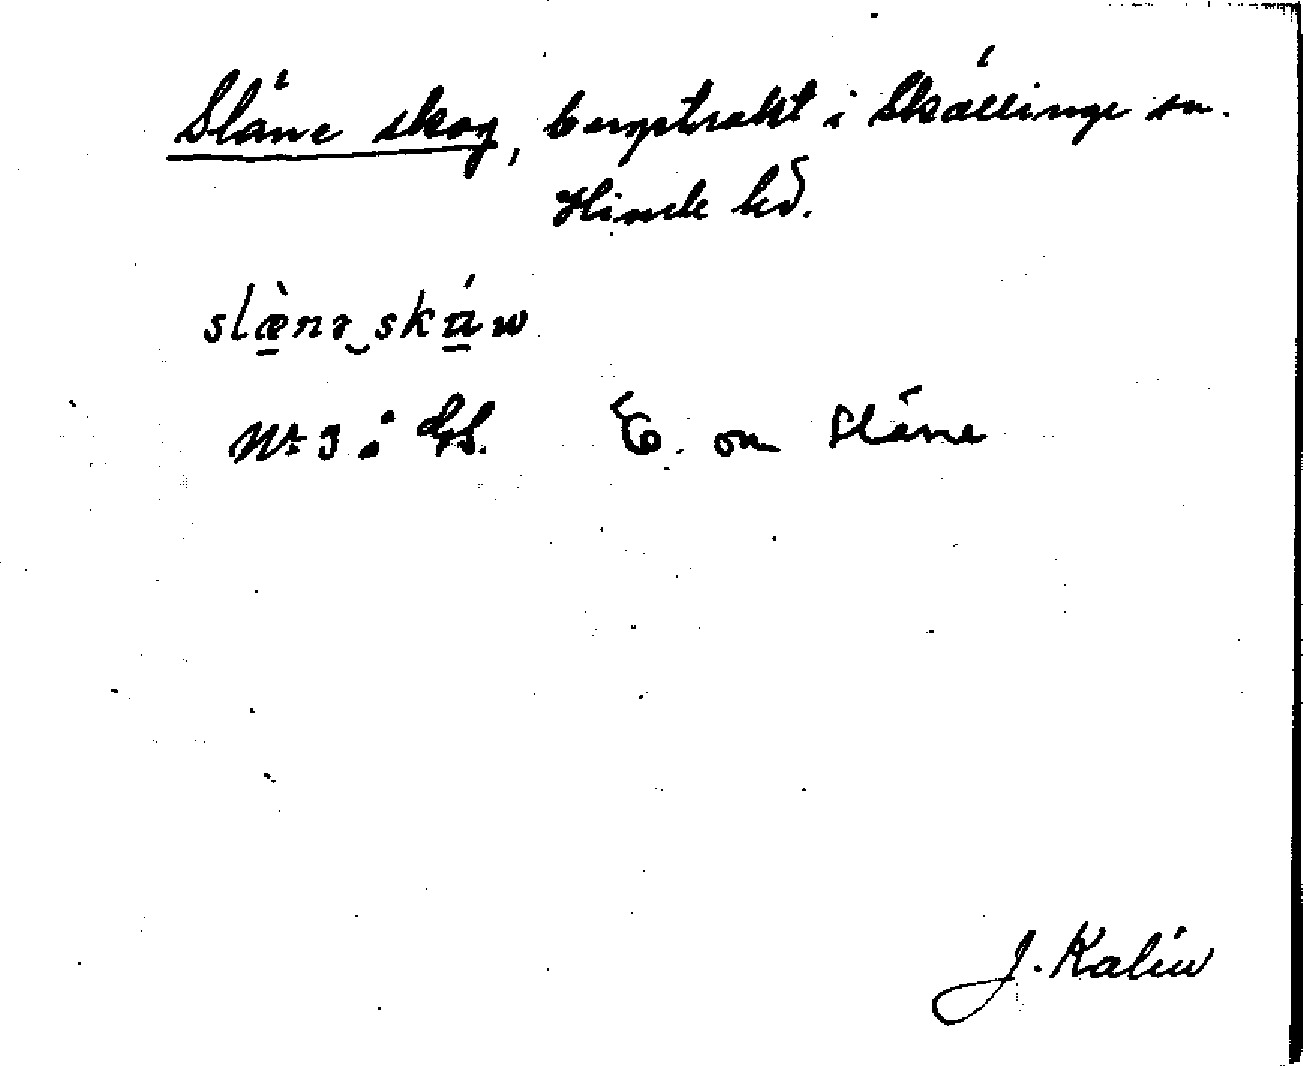 Släne skog, bergstrakt i Skällinge sn.
Himle hd.
slæ̀nə‿skáw
Nr 3 å GS. E. om Släne
J. Kalén